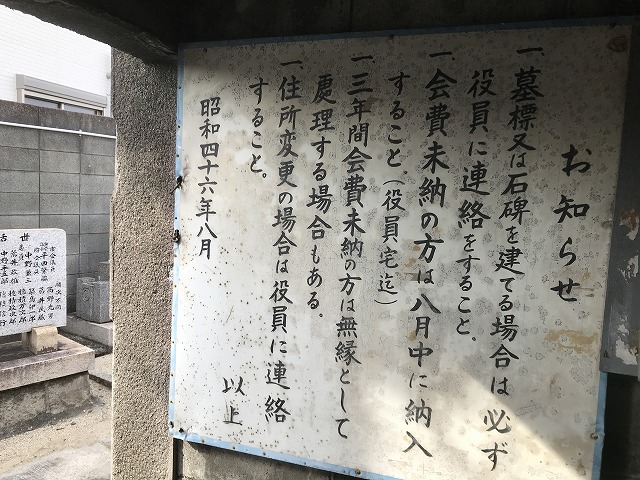 お知らせ
一、墓標又は石碑を建てる場合は必ず
役員に連絡をすること。
一、会費未納の方は八月中に納入
すること(役員宅迄)
一、三年間会費未納の方は無縁として
處理する場合もある。
一、住所変更の場合は役員に連絡
すること。
以上
昭和四十六年八月
世